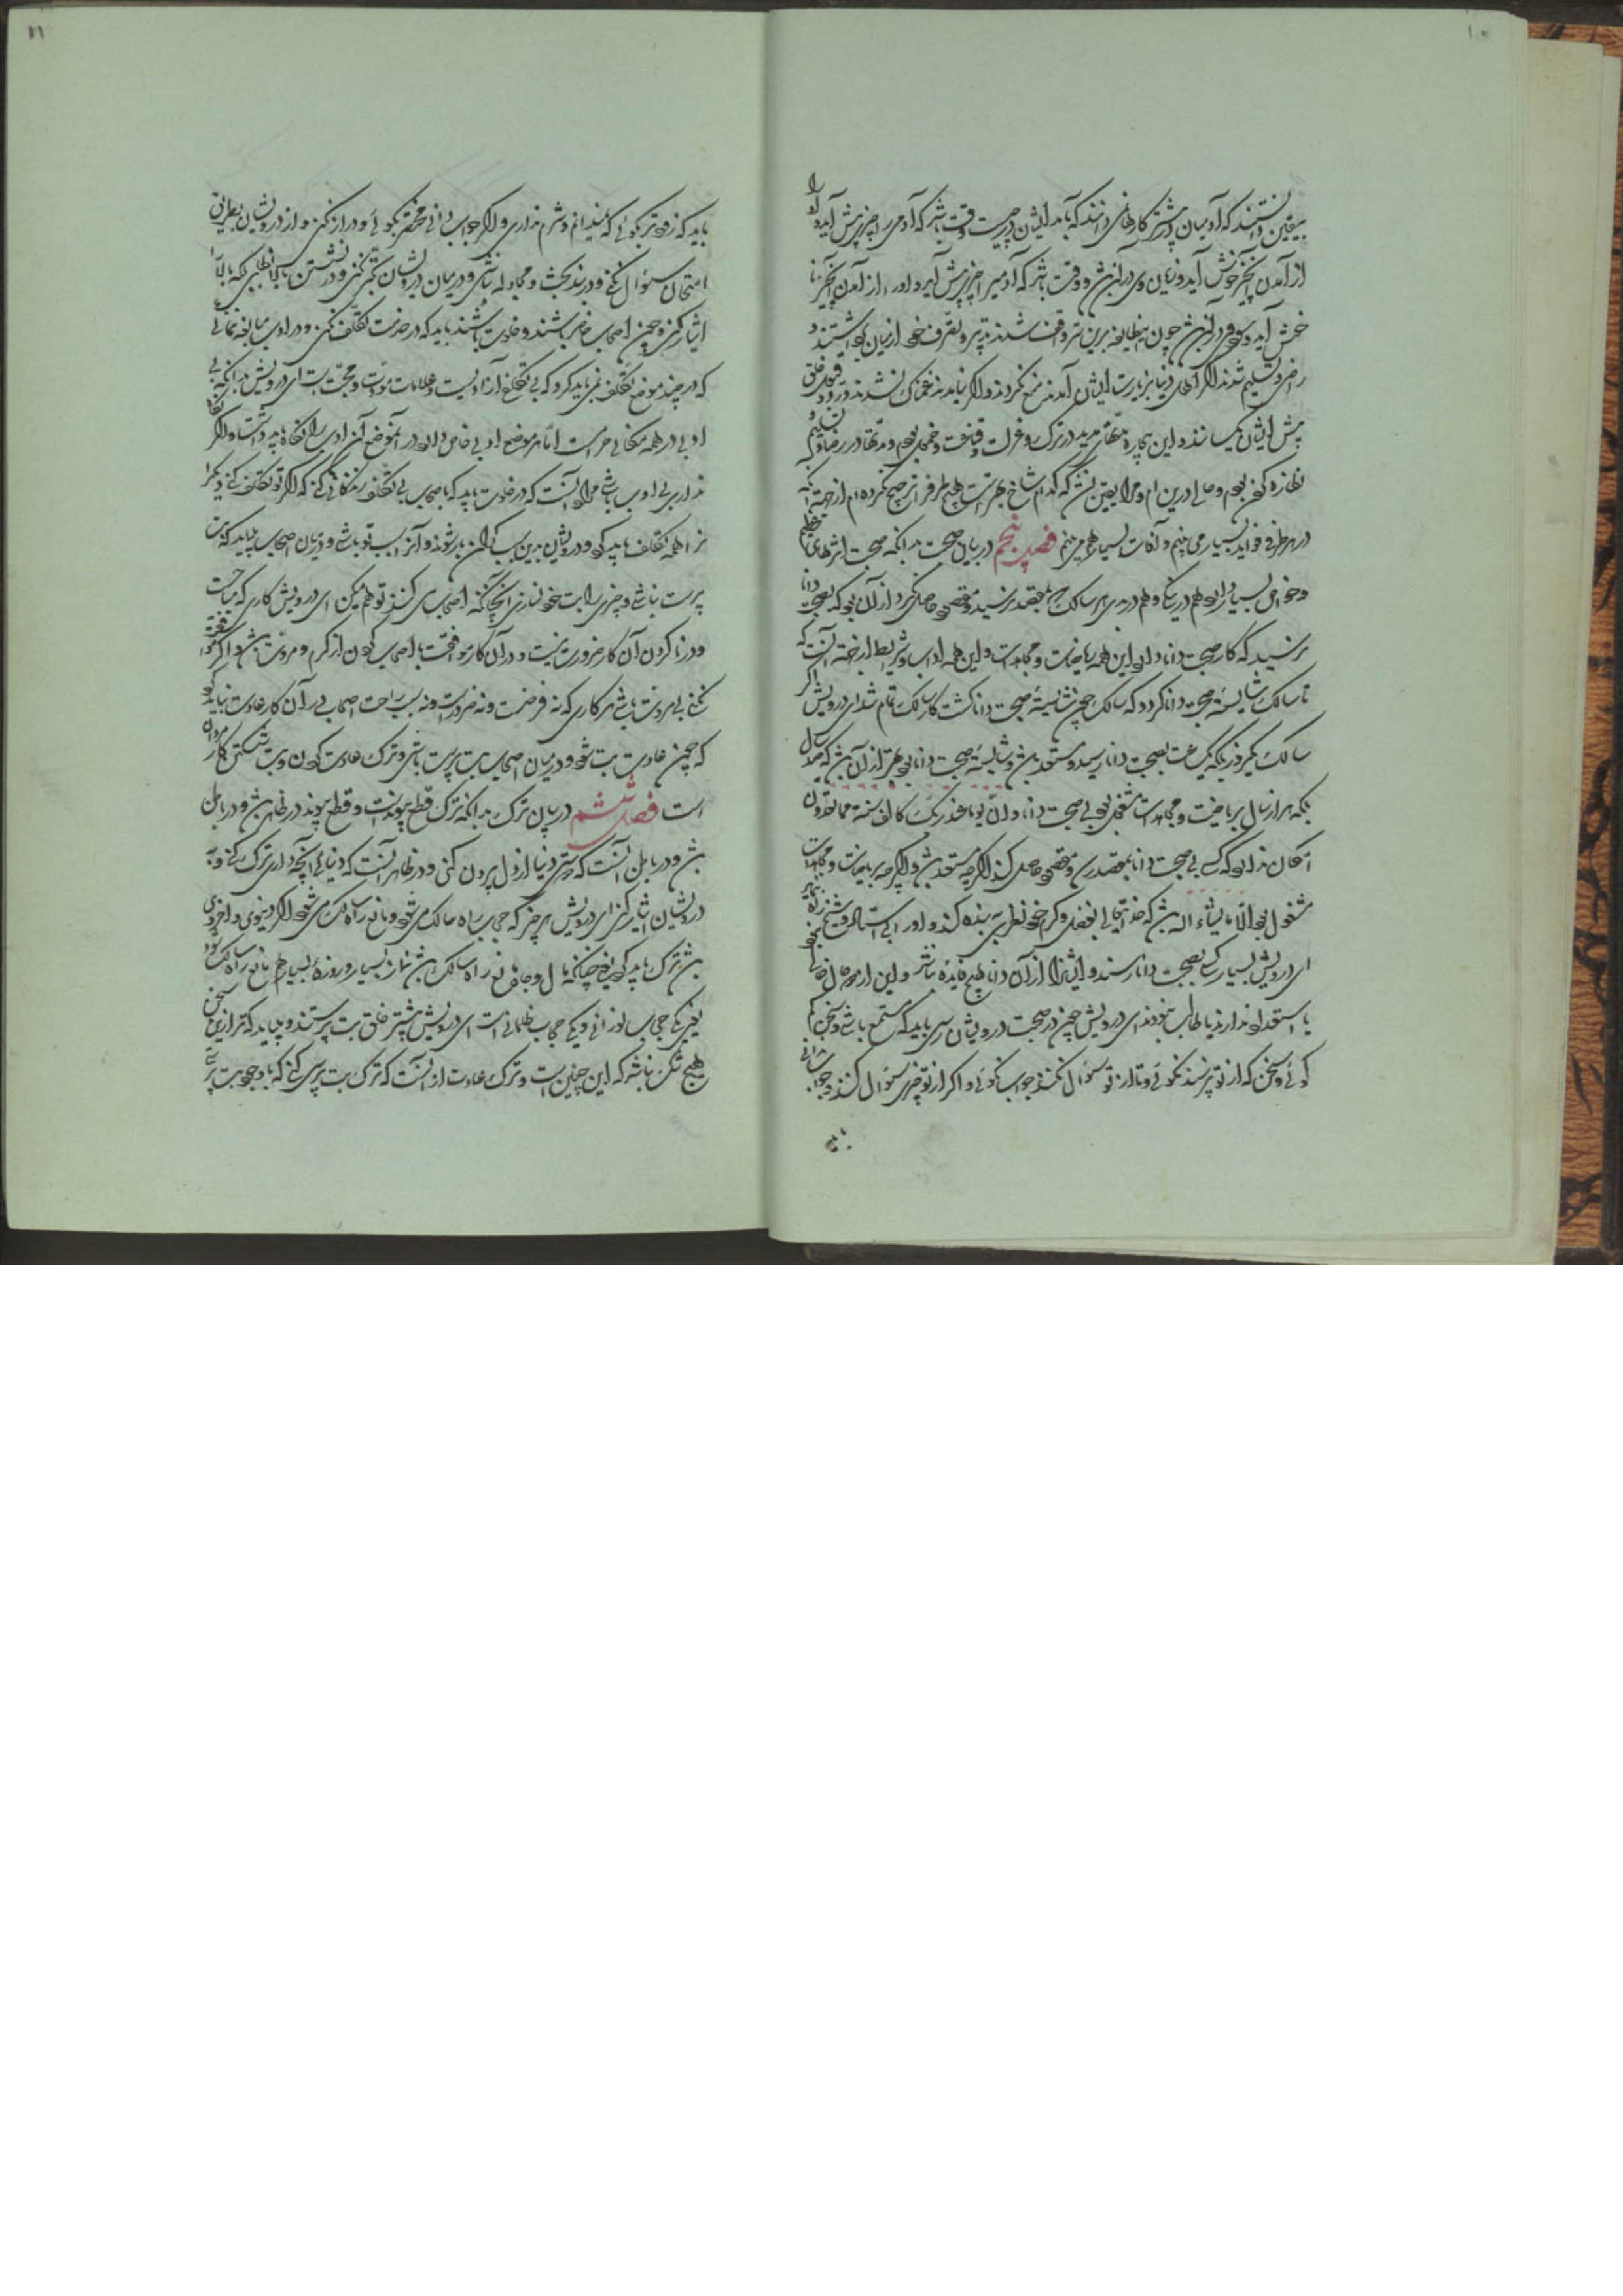 ۱۰
بیقین دانستند که آدمیان بیشتر کارها نمی دانند که بآمد ایشان در چیست وقت باشد که آدمی را چیزی پیش آید و او را
از آمدن آن چیز خوش آید و زیان وی در آن باشد و وقت باشد که آدمی را چیزی پیش آید و او را از آمدن آن چیز نا
خوش آید و سود وی در آن باشد چون این طایفه برین سر واقف شدند تدبیر و تصرف خود از میان برداشتند و
راضی و تسلیم شدند اگر اهل دنیا بزیارت ایشان آمدند منع نکردند و اگر نیامدند غمناک نشدند و رد و قبول خلق
پیش ایشان یکسان شد و این بیچاره مدتهای مدید در ترک و عزلت و قناعت و خمول بودم و مدتها در رضا و تسلیم و
نظاره کردن بودم و حالی درین ام و مرا یقین نشد که کدام شاخ بهتر است هیچ طرف را ترجیح نکرده ام از جهت آنکه
در هر طرفی فواید بسیار می بینم و آفات بسیار هم می بینم فصل پنجم در بیان صحبت بدانکه صحبت اثرهای عظیم
و خواص بسیار دارد هم در نیکی و هم در بدی هر سالک که بمقصد نرسید و مقصود حاصل نکرد از آن بود که بصحبت دانا
نرسید که کار صحبت دانا دارد این همه ریاضات و مجاهدات و این همه آداب و شرایط از جهت آنست که
تا سالک شایسته صحبت دانا گردد که سالک چون شایسته صحبت دانا گشت کار سالک تمام شد ای درویش اگر
سالک یکروز بلکه یکساعت بصحبت دانا رسد و مستعد باشد و شایسته صحبت دانا بود بهتر از آن باشد که صد سال
بلکه هزار سال بریاضت و مجاهدات مشغول بود بی صحبت دانا و ان یوما عند ربک کالف سنة مما تعدون
امکان ندارد که کسی بی صحبت دانا بمقصد رسد و مقصود حاصل کند اگرچه مستعد باشد و اگرچه بریاضات و مجاهدات
مشغول بود الا ما یشاء الله باشد که خدای تعالی بفضل و کرم خود نظر به بنده کند و او را
ای درویش بسیار کس بصحبت دانا رسند و ایشانرا از آن دانا هیچ فایده نباشد و این از دو حال خالی
یا استعداد ندارند یا طالب نبودند ای درویش چون در صحبت درویشان رسی باید که مستمع باشی و سخن کم
گوئی و سخن که از تو نپرسند نگوئی و تا از تو سؤال نکنند جواب نگوئی و اگر از تو چیزی سؤال کنند و جواب ندانی
باید
۱۱
باید که زود تر بگوئی که نمیدانم و شرم نداری و اگر جواب دانی مختصر بگوئی و دراز نکنی و از درویشان بطریق
امتحان سؤال نکنی و در بند بحث و مجادله نباشی و در میان درویشان تکبر نکنی و در نشستن بالا نطلبی بلکه بالا را
ایثار کنی و چون اصحاب حاضر باشند و خلوت باشد باید که در خدمت تکلف نکنی و در ادب مبالغه ننمائی
که در چند موضع تکلف نمی باید کرد که بی تکلفی آزادیست و علامات مودت و محبت است ای درویش نه آنکه بی
ادبی در همه مکانی حرامست اما هر موضع ادبی خاص دارد در آن موضع آن ادب را نگاه باید داشت و اگر نگاه
نداری بی ادب باشی مراد آنست که در خلوت باید که با اصحاب بی تکلف زندگانی کنی که اگر تو تکلف کنی دیگرا
نرا همه تکلف باید کرد و درویشان بدین سبب گران بار شوند و آن سبب تو باشی و در میان اصحاب باید که بت
پرست نباشی و چیزی را بت خود نسازی آنچه که اصحاب می کنند تو هم میکن ای درویش کاری که مباحست
و در ناکردن آن کار ضرورت نیست در آن کار موافقت با اصحاب کردن از کرم و مروت باشد و اگر موافقت
نکنی بی مروت باشی هر کاری که نه فرضست و نه ضرورت و نه سبب راحت اصحاب در آن کار عادت نباید کرد
که چون عادت بت شود در میان اصحاب بت پرست باشی و ترک عادت کردن و بت شکستن کار مردان
است فصل ششم در بیان ترک بدانکه ترک قطع پیوند است و قطع پیوند در ظاهر باشد و در باطن
باشد و در باطن آنست که دوستی دنیا از دل بیرون کنی و در ظاهر آنست که دنیائی آنچه داری ترک کنی و به
درویشان ایثار کنی ای درویش هر چیز که حجاب راه سالک می شود و مانع راه سالک می شود اگر دنیوی و اخروی
باشد ترک باید کرد یعنی چنانکه مال و جاه مانع راه سالک باشد نماز بسیار و روزه بسیار هم مانع راه سالک بود
یعنی یکی حجاب نورانی و یکی حجاب ظلمانی است ای درویش بیشتر خلق بت پرستند و بباید که ترا ازین سخن
هیچ شک نباشد که این چنین است و ترک عادت از آنست که ترک بت پرستی کنی که با وجود بت پرستی